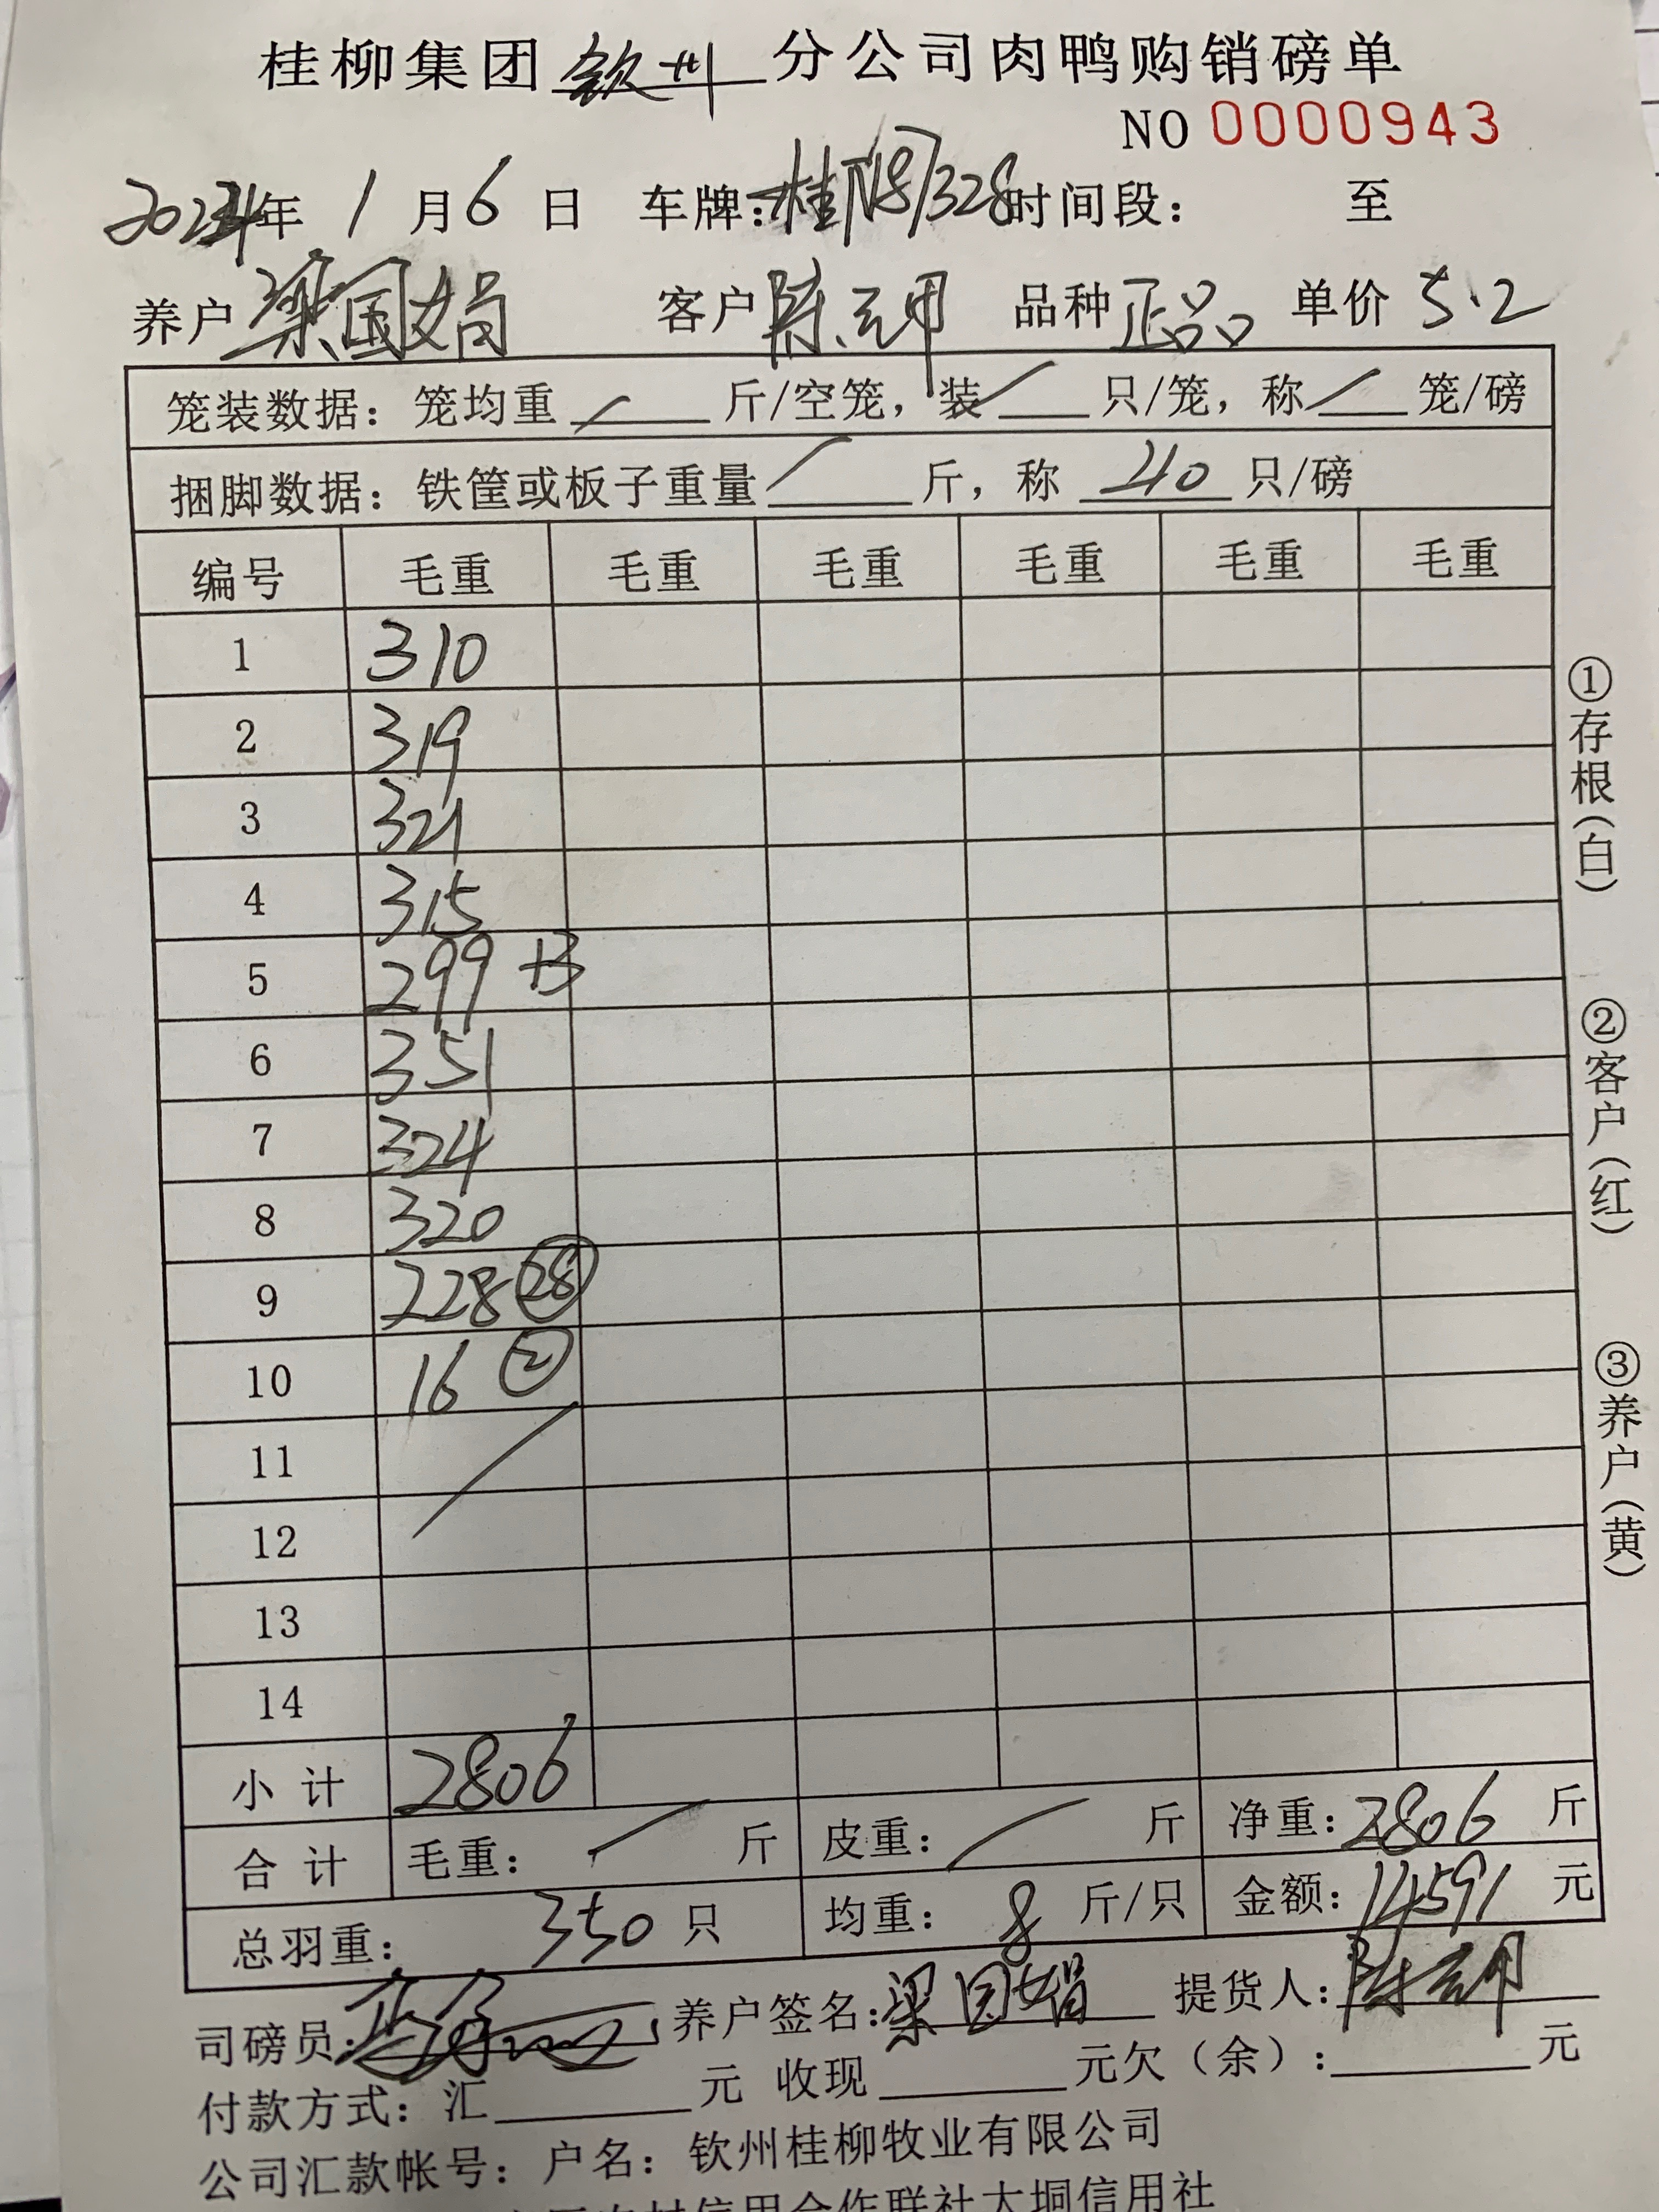 桂柳集团钦州分公司肉鸭购销磅单
NO 0000943
2024年 1月6日 车牌:桂N87328 时间段: 至
养户 梁国娟 客户 陈 品种 正品 单价 5.2
笼装数据: 笼均重 / 斤/空笼, 装 / 只/笼, 称 / 笼/磅
捆脚数据: 铁筐或板子重量 / 斤, 称 40 只/磅
编号 毛重 毛重 毛重 毛重 毛重 毛重
1 310
2 319
3 321
4 315
5 299 +3
6 351
7 324
8 320
9 228 28
10 16 2
11 /
12
13
14
小计 2806
合计 毛重: / 斤 皮重: / 斤 净重: 2806 斤
总羽重: 350 只 均重: 8 斤/只 金额: 14591 元
司磅员: 养户签名: 梁国娟 提货人: 陈
付款方式: 汇 元 收现 元欠(余): 元
公司汇款帐号: 户名: 钦州桂柳牧业有限公司
农村信用合作联社大垌信用社
①存根(白)
②客户(红)
③养户(黄)